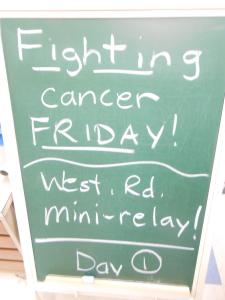 Fighting
cancer
FRIDAY!
West. Rd.
mini-relay!
Day 1